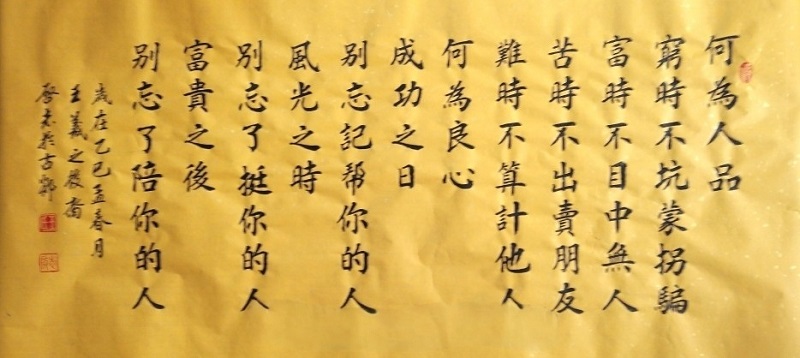 何為人品
窮時不坑蒙拐騙
富時不目中無人
苦時不出賣朋友
難時不算計他人
何為良心
成功之日
别忘記幫你的人
風光之時
别忘了挺你的人
富貴之後
别忘了陪你的人
歲在乙巳孟春月
王羲之後裔
於古鄴